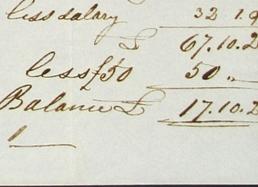 less salary 32.1.9
£ 67.10.2
less £50 50 „
Balance £ 17.10.2